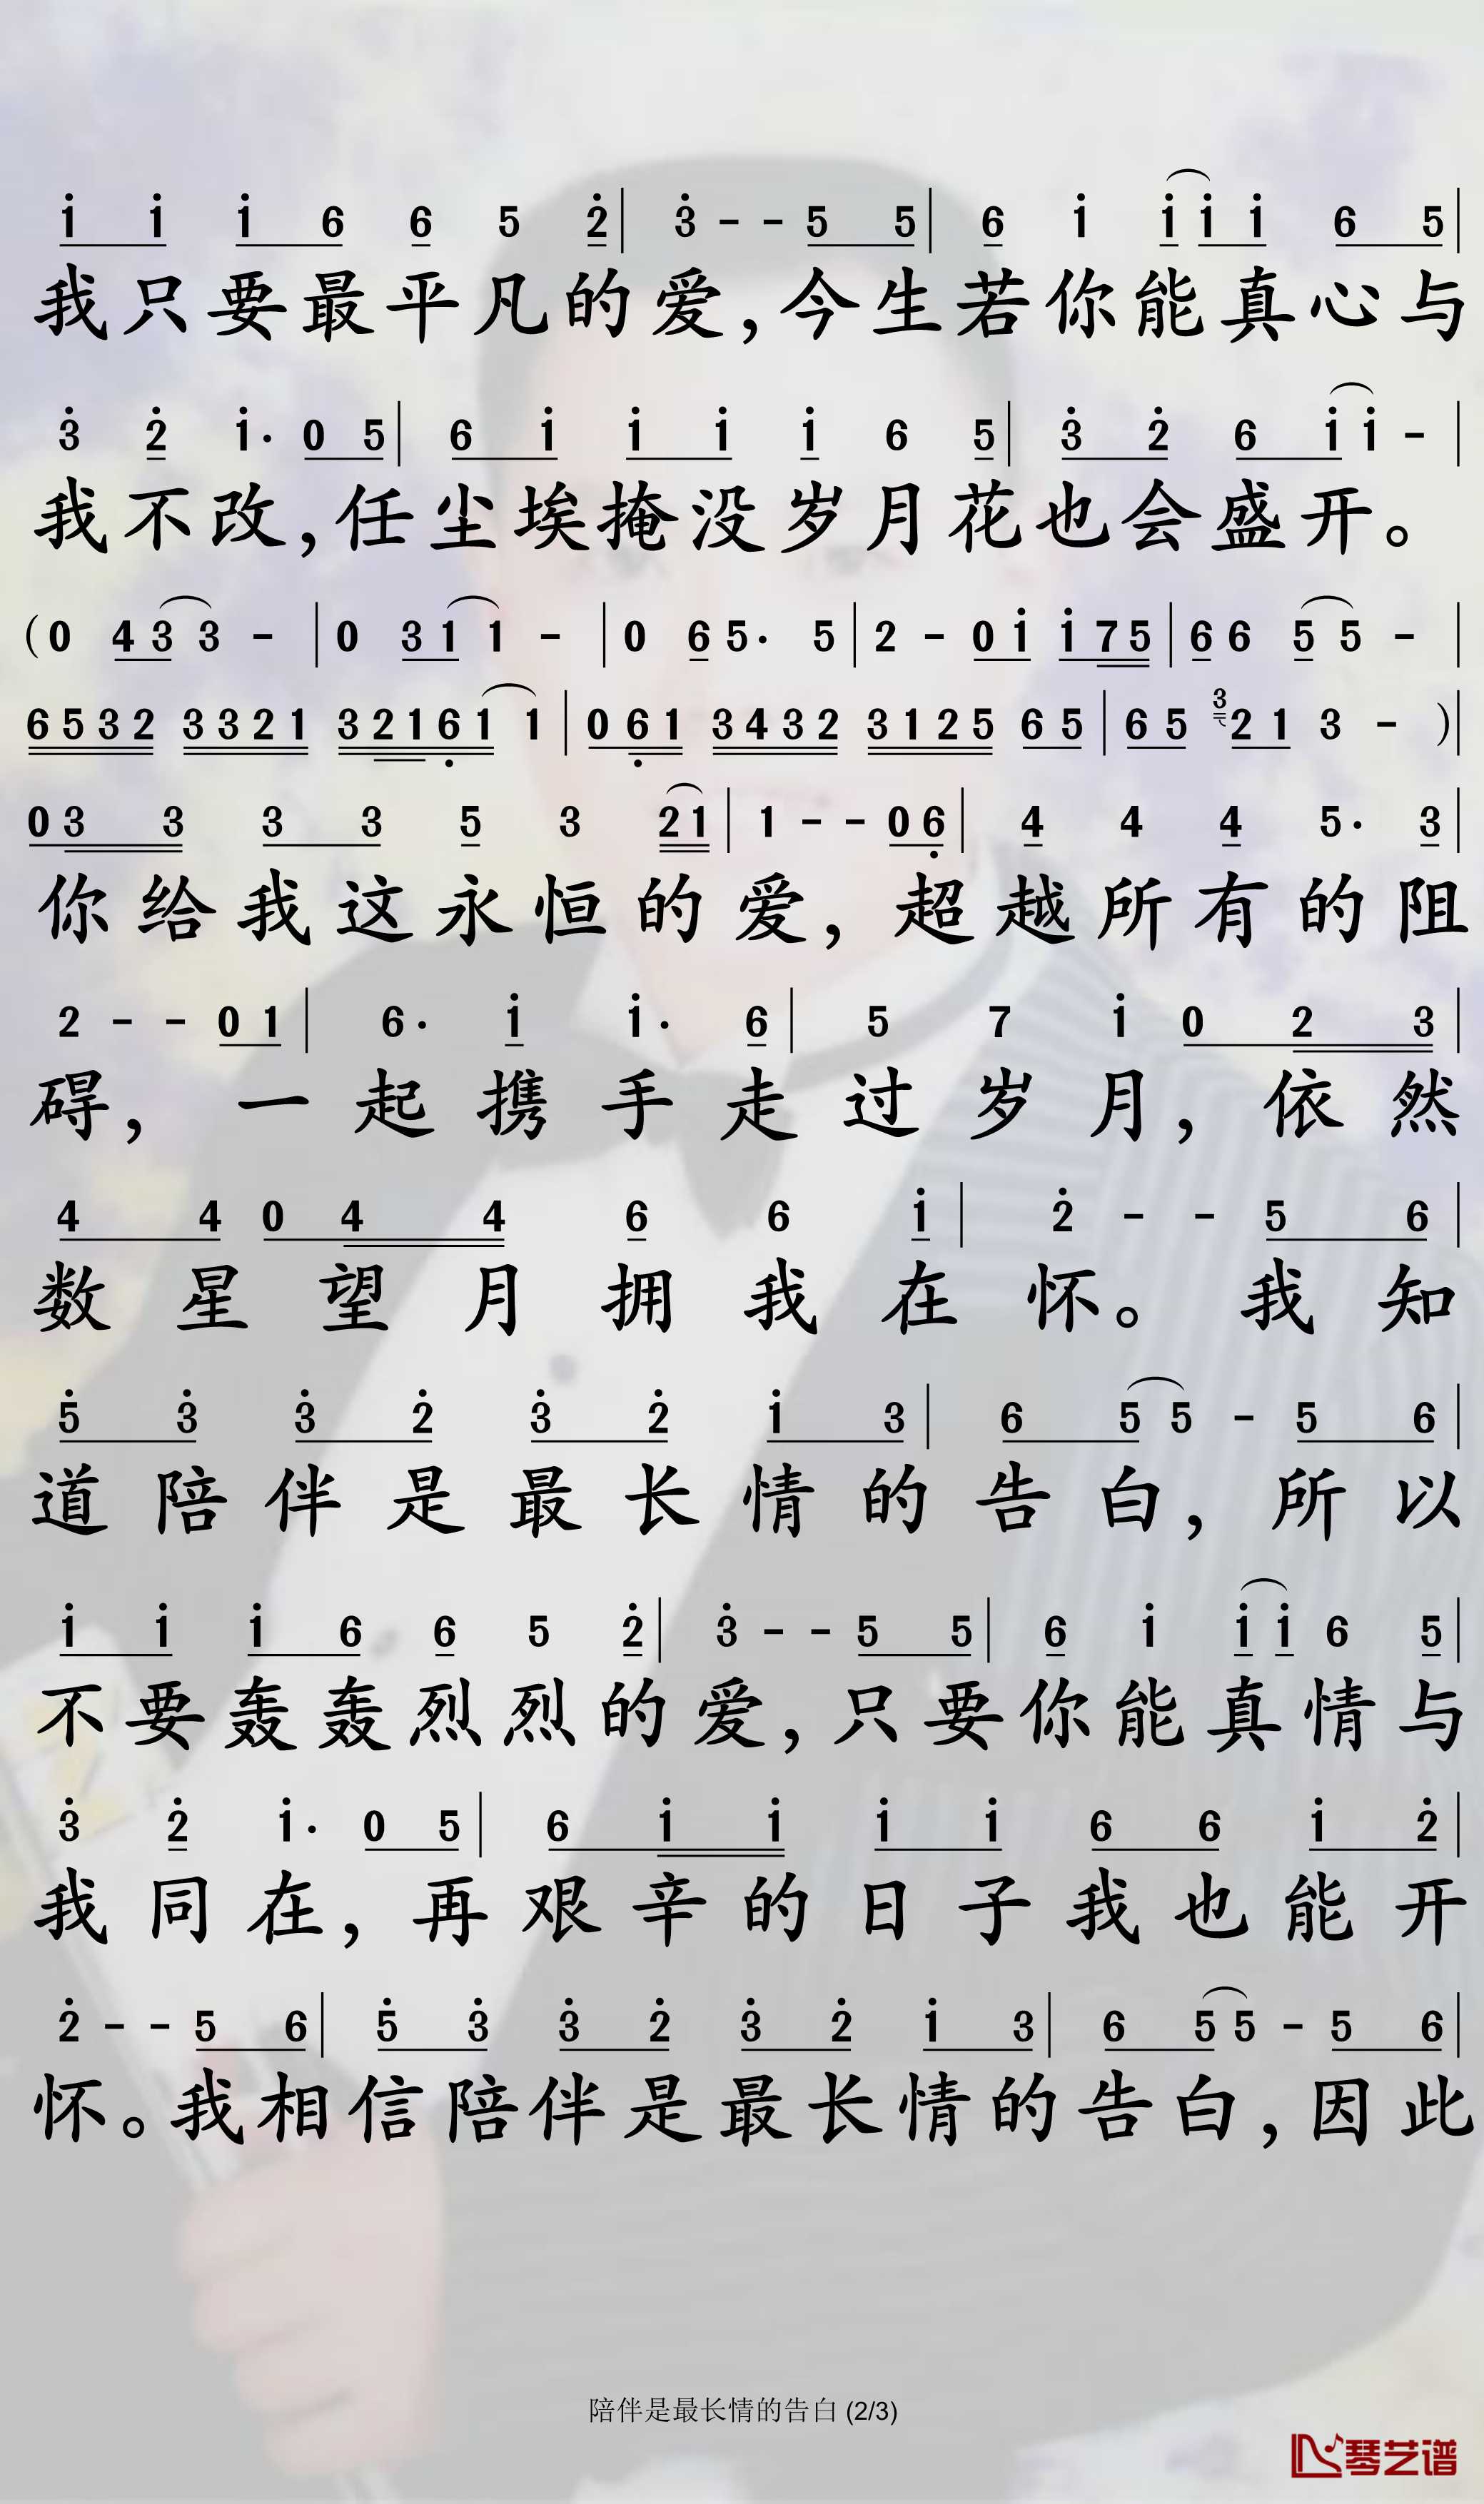 i̇ i̇ i̇ 6 6 5 2̇ | 3̇ - - 5 5 | 6 i̇ i̇ i̇ i̇ 6 5 |
我只要最平凡的爱,今生若你能真心与
3̇ 2̇ i̇· 0 5 | 6 i̇ i̇ i̇ i̇ 6 5 | 3̇ 2̇ 6 i̇ i̇ - |
我不改,任尘埃掩没岁月花也会盛开。
(0 4 3 3 - | 0 3 1 1 - | 0 6 5· 5 | 2 - 0 i̇ i̇ 7 5 | 6 6 5 5 - |
6 5 3 2 3 3 2 1 3 2 1 6̣ 1 1 | 0 6̣ 1 3 4 3 2 3 1 2 5 6 5 | 6 5 3 2 1 3 - )|
0 3 3 3 3 5 3 2 1 | 1 - - 0 6̣ | 4 4 4 5· 3 |
你给我这永恒的爱,超越所有的阻
2 - - 0 1 | 6· i̇ i̇· 6 | 5 7 i̇ 0 2 3 |
碍,一起携手走过岁月,依然
4 4 0 4 4 6 6 i̇ | 2̇ - - 5 6 |
数星望月拥我在怀。我知
5̇ 3̇ 3̇ 2̇ 3̇ 2̇ i̇ 3 | 6 5 5 - 5 6 |
道陪伴是最长情的告白,所以
i̇ i̇ i̇ 6 6 5 2̇ | 3̇ - - 5 5 | 6 i̇ i̇ i̇ 6 5 |
不要轰轰烈烈的爱,只要你能真情与
3̇ 2̇ i̇· 0 5 | 6 i̇ i̇ i̇ i̇ 6 6 i̇ 2̇ |
我同在,再艰辛的日子我也能开
2̇ - - 5 6 | 5̇ 3̇ 3̇ 2̇ 3̇ 2̇ i̇ 3 | 6 5 5 - 5 6 |
怀。我相信陪伴是最长情的告白,因此
陪伴是最长情的告白 (2/3)
琴艺谱